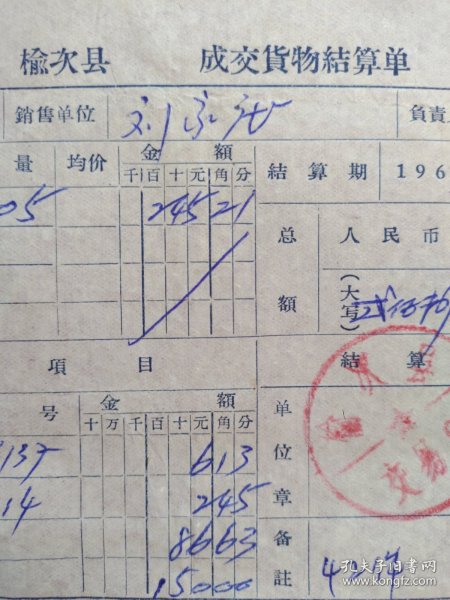 榆次县 成交貨物結算单
銷售单位 刘家
負責
量 均价 金額 結算期 196
千百十元角分
05 24521
总額 人民币
(大写)
項目 結算
号 金額 单位章
十万千百十元角分
137 613
14 245
8663
15000
备註
交易
孔夫子旧书网
www.kongfz.com